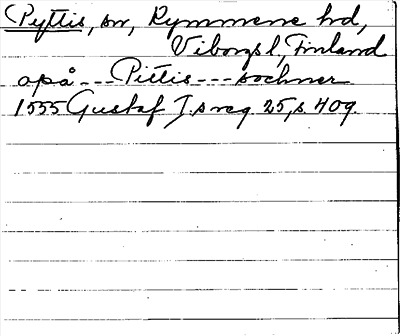 Pyttis, sn, Kymmene hd,
Viborgs l, Finland
opå --- Pittis --- sochner
1555 Gustaf I.s reg. 25, s. 409.